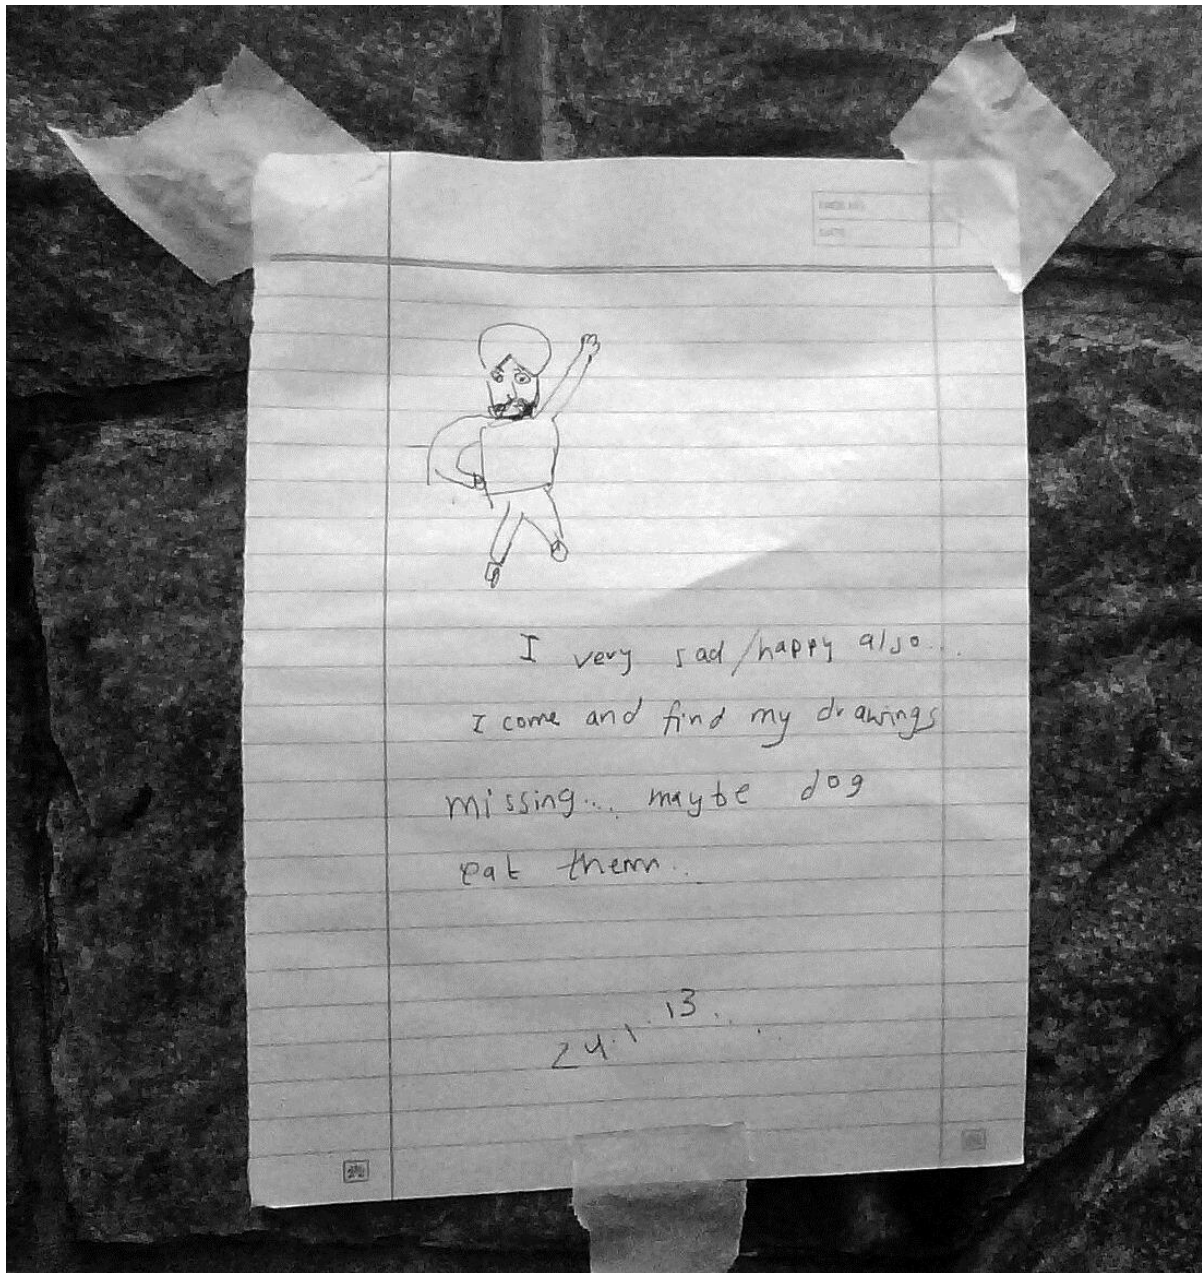 PAGE NO.
DATE
I very sad/happy also...
I come and find my drawings
missing... maybe dog
eat them..
24.1.13...